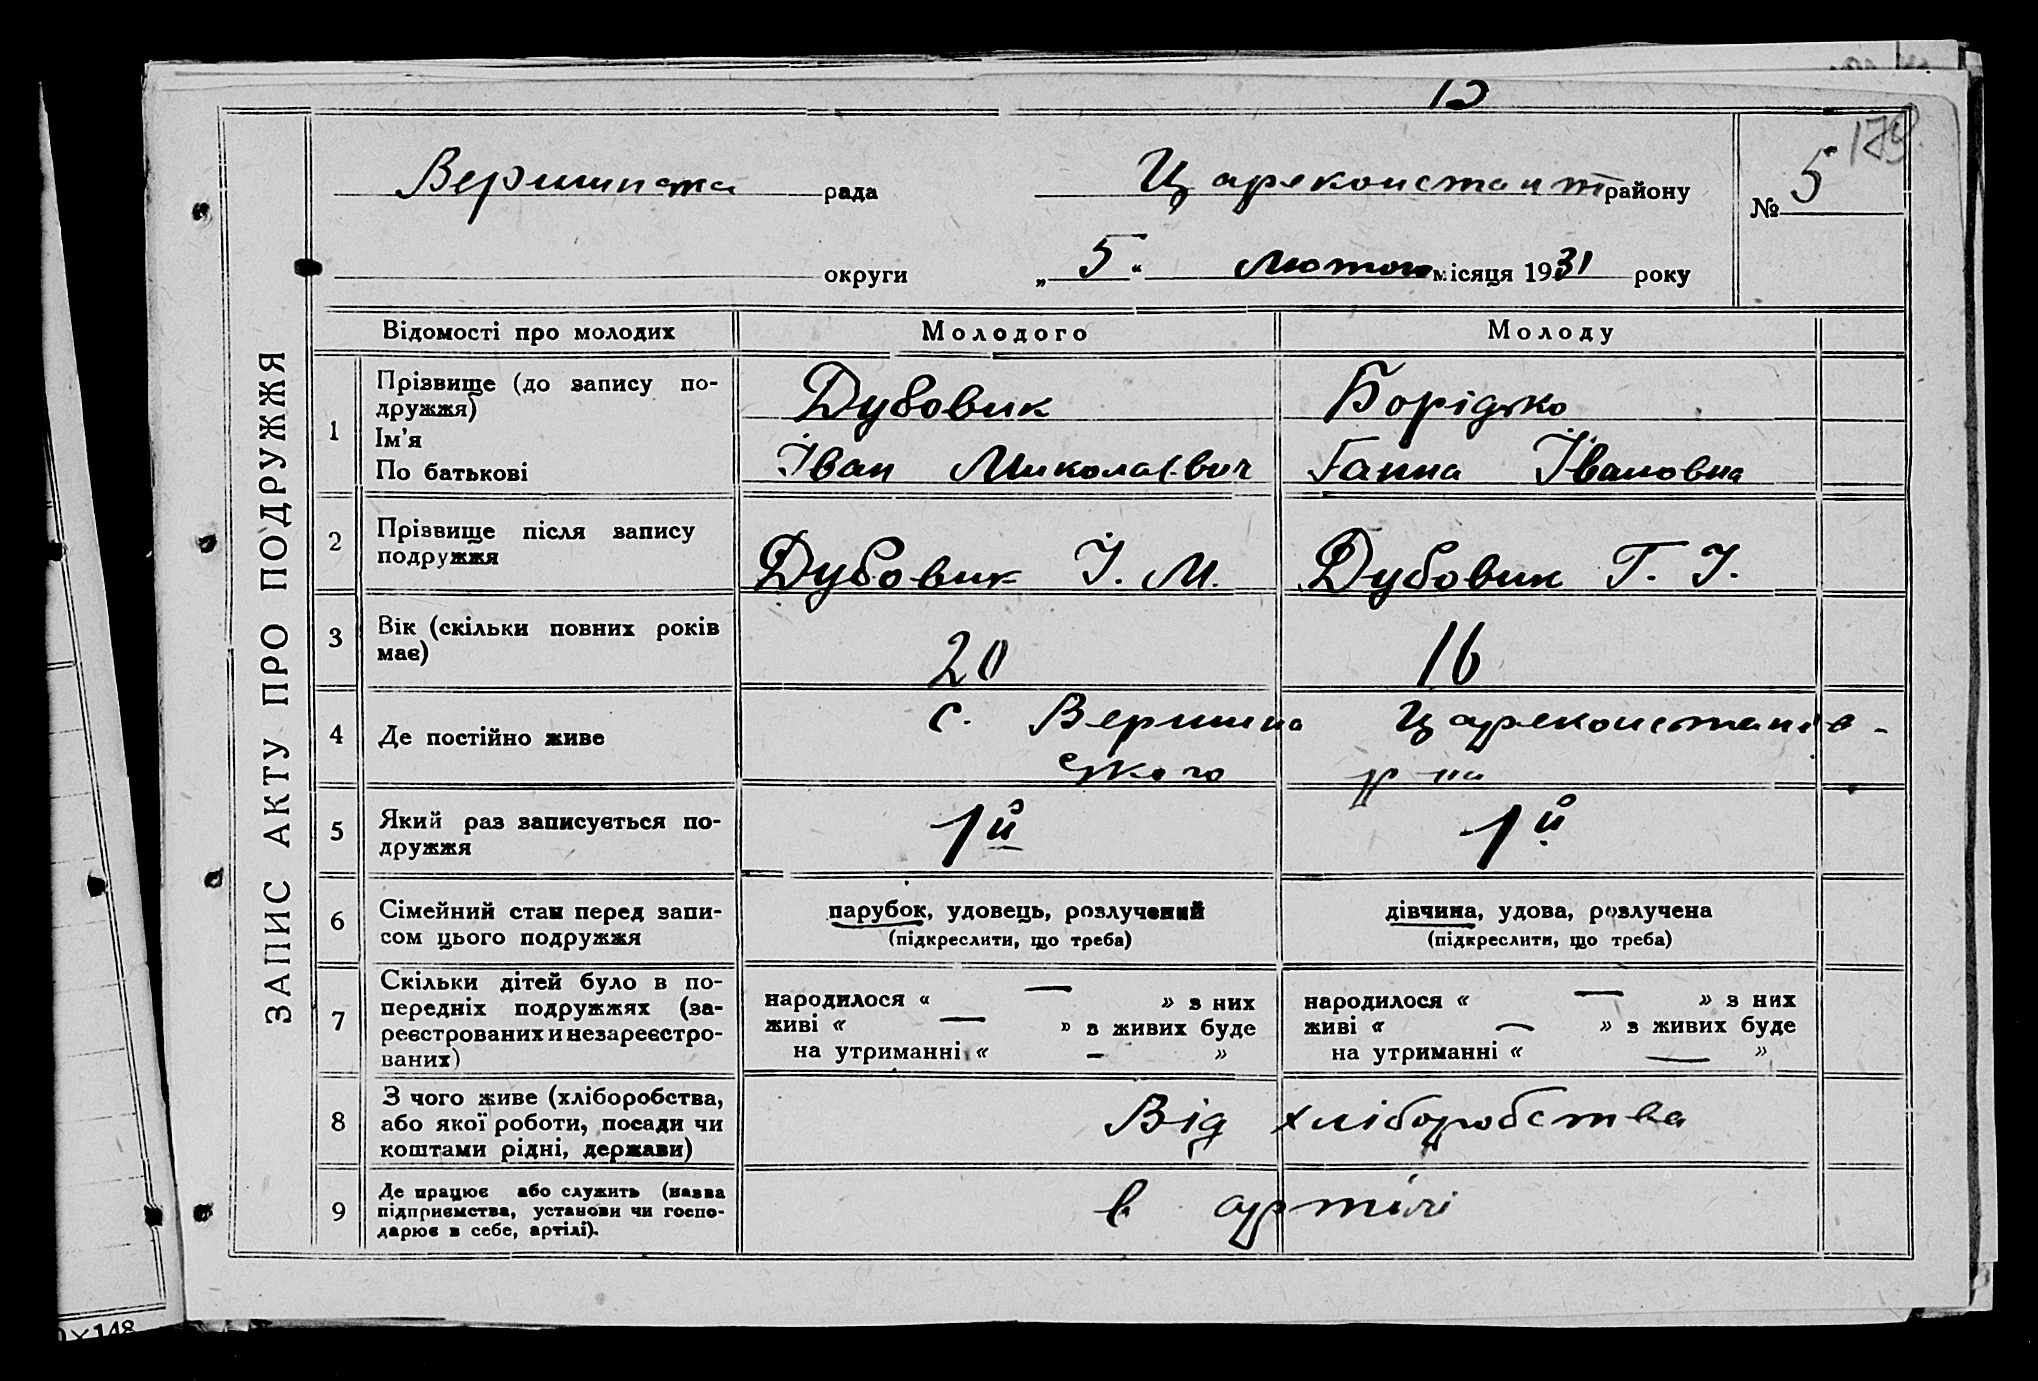 179
Вершинська рада Царекостант району № 5
округи „ 5 “ лютого місяця 1931 року
ЗАПИС АКТУ ПРО ПОДРУЖЖЯ
Відомості про молодих Молодого Молоду
1 Прізвище (до запису по-
дружжя) Дубовик Борідько
Ім'я
По батькові Іван Миколаєвич Ганна Івановна
2 Прізвище після запису
подружжя Дубовик І. М. Дубовик Г. І.
3 Вік (скільки повних років
має) 20 16
4 Де постійно живе с. Вершина Царекостантів-
ського р-на
5 Який раз записується по-
дружжя 1й 1й
6 Сімейний стан перед запи-
сом цього подружжя
парубок, удовець, розлучений
(підкреслити, що треба)
дівчина, удова, розлучена
(підкреслити, що треба)
7 Скільки дітей було в по-
передніх подружжях (за-
реєстрованих и незареєстро-
ваних)
народилося « — » з них
живі « — » з живих буде
на утриманні « — »
народилося « — » з них
живі « — » з живих буде
на утриманні « — »
8 З чого живе (хліборобства,
або якої роботи, посади чи
коштами рідні, держави)
Від хліборобства
9 Де працює або служить (назва
підприємства, установи чи госпо-
дарює в себе, артілі).
в артілі
×148